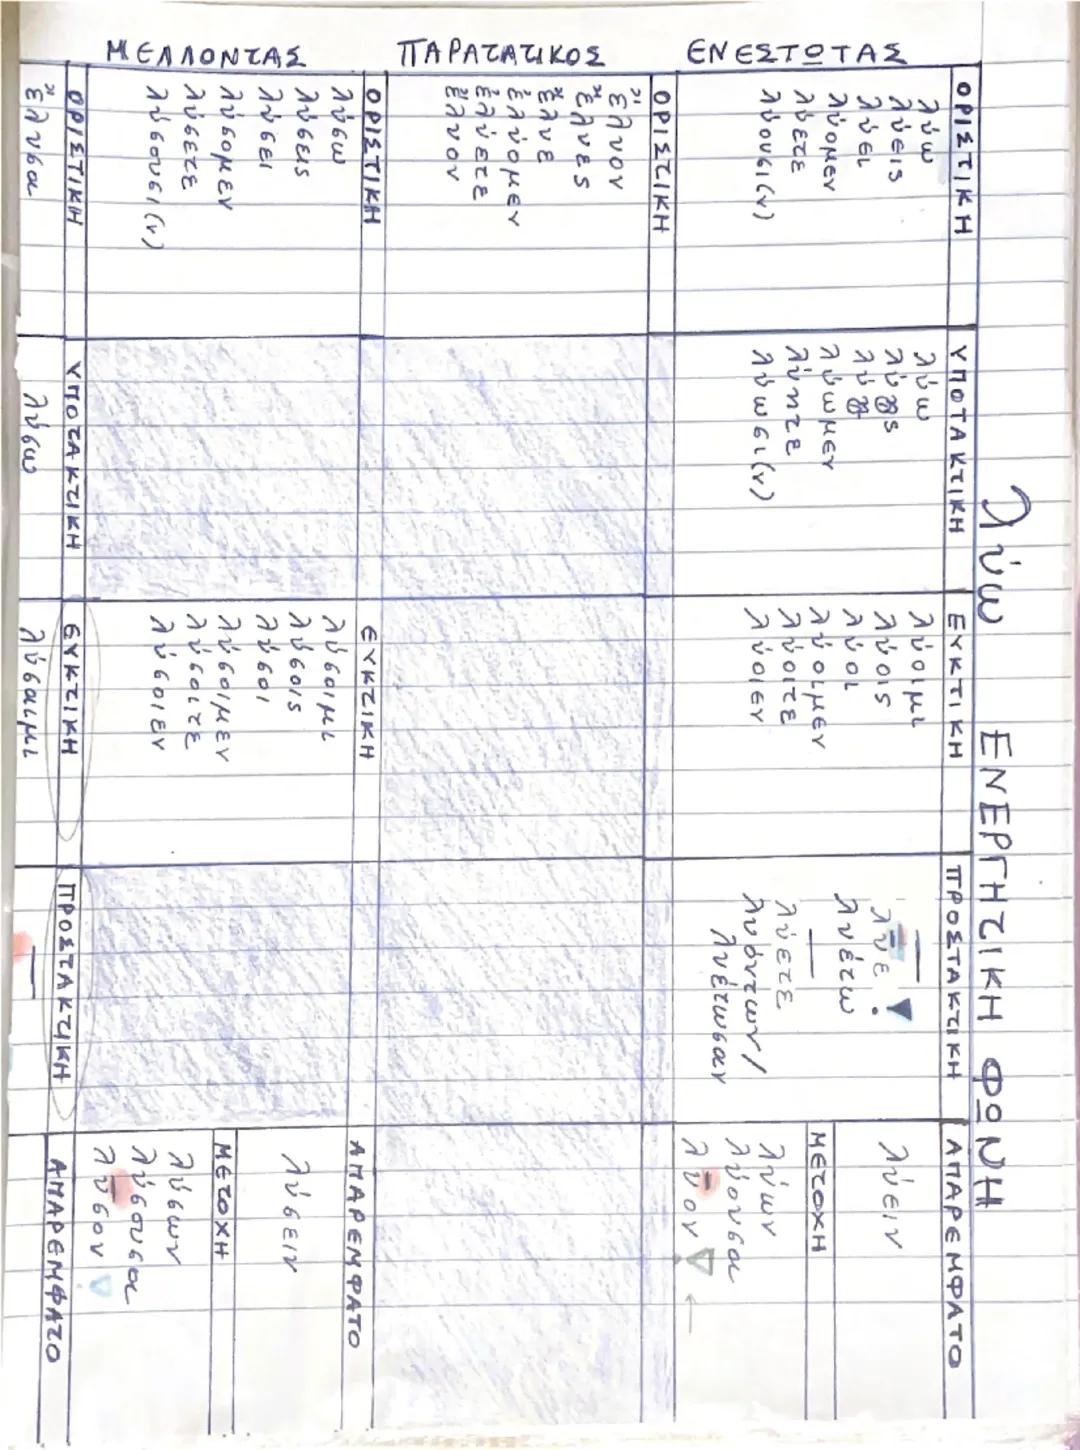 λύω ΕΝΕΡΓΗΤΙΚΗ ΦΩΝΗ
ΕΝΕΣΤΩΤΑΣ
ΟΡΙΣΤΙΚΗ
λύω
λύεις
λύει
λύομεν
λύετε
λύουσι(ν)
ΥΠΟΤΑΚΤΙΚΗ
λύω
λύῃς
λύῃ
λύωμεν
λύητε
λύωσι(ν)
ΕΥΚΤΙΚΗ
λύοιμι
λύοις
λύοι
λύοιμεν
λύοιτε
λύοιεν
ΠΡΟΣΤΑΚΤΙΚΗ
—
λῦε
λυέτω
—
λύετε
λυόντων/
λυέτωσαν
ΑΠΑΡΕΜΦΑΤΟ
λύειν
ΜΕΤΟΧΗ
λύων
λύουσα
λῦον
ΠΑΡΑΤΑΤΙΚΟΣ
ΟΡΙΣΤΙΚΗ
ἔλυον
ἔλυες
ἔλυε
ἐλύομεν
ἐλύετε
ἔλυον
ΜΕΛΛΟΝΤΑΣ
ΟΡΙΣΤΙΚΗ
λύσω
λύσεις
λύσει
λύσομεν
λύσετε
λύσουσι(ν)
ΕΥΚΤΙΚΗ
λύσοιμι
λύσοις
λύσοι
λύσοιμεν
λύσοιτε
λύσοιεν
ΑΠΑΡΕΜΦΑΤΟ
λύσειν
ΜΕΤΟΧΗ
λύσων
λύσουσα
λῦσον
ΟΡΙΣΤΙΚΗ
ἔλυσα
ΥΠΟΤΑΚΤΙΚΗ
λύσω
ΕΥΚΤΙΚΗ
λύσαιμι
ΠΡΟΣΤΑΚΤΙΚΗ
—
ΑΠΑΡΕΜΦΑΤΟ